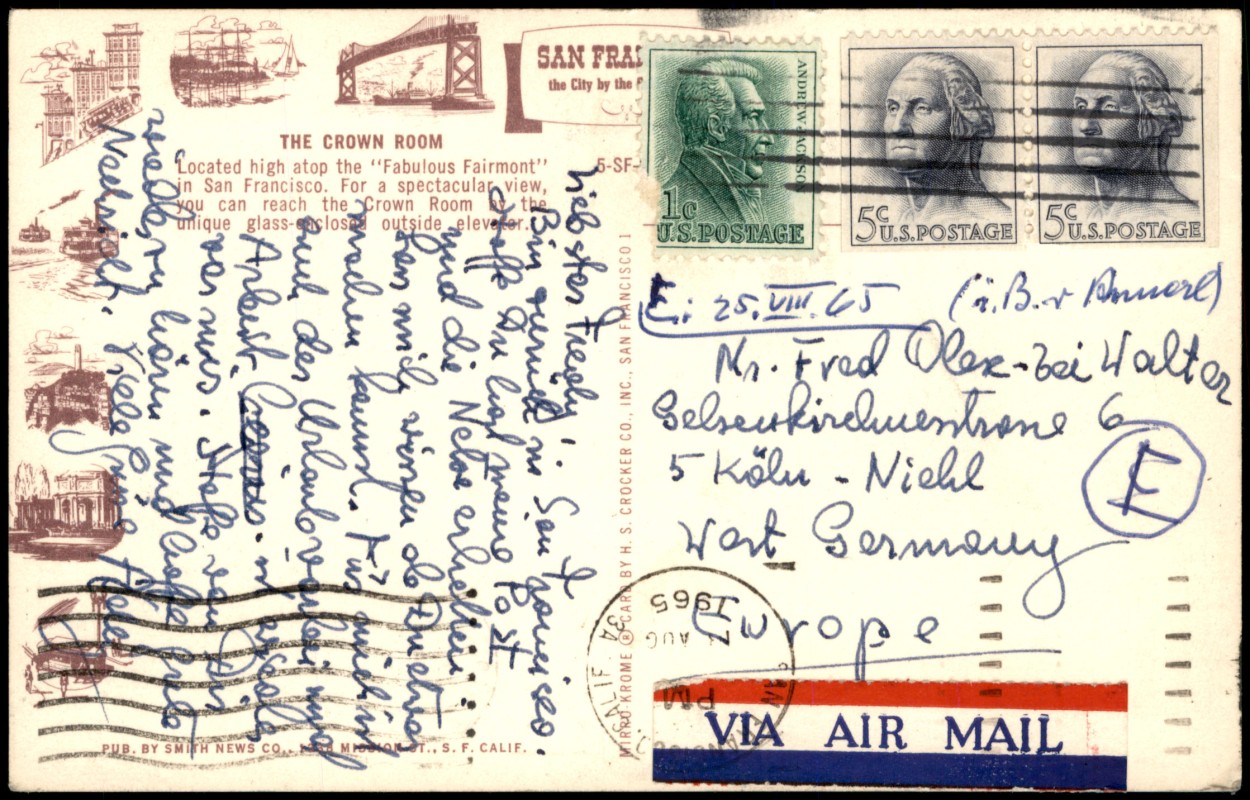 SAN FRA
the City by the
THE CROWN ROOM
Located high atop the "Fabulous Fairmont"
in San Francisco. For a spectacular view,
you can reach the Crown Room by the
unique glass-enclosed outside elevator.
5-SF-
Liebster Fredy!
Bin wieder in San Francisco.
Hoffe Du hast meine Post
und die Nelke erhalten.
Lass mich wissen ob Du etwas
machen kannst. Für mich ist
auch der Urlaub vorbei und
Arbeit
vor mir. Hoffe von Dir
wieder zu hören und hoffe gute
Nachricht. Viele
MIRRO-KROME ® CARD BY H. S. CROCKER CO., INC., SAN FRANCISCO 1
PUB. BY SMITH NEWS CO., MISSION ST., S. F. CALIF.
ANDREW JACKSON
1c
U.S. POSTAGE
5c U.S. POSTAGE
5c U.S. POSTAGE
E: 25. VIII. 65 (z. B. v Annerl)
Mr. Fred Olex - bei Walter
Gelsenkirchenerstrasse 6
5 Köln - Niehl
E
West Germany
Europe
CALIF.
PM
17 AUG
1965
VIA AIR MAIL